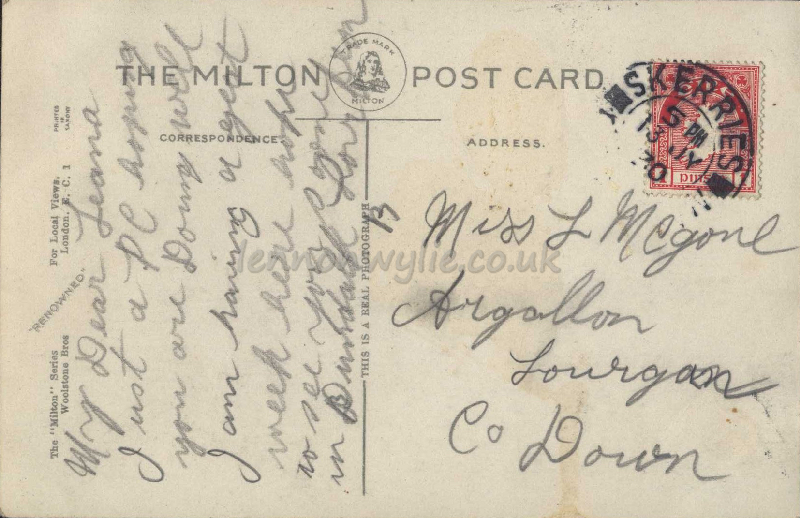 THE MILTON POST CARD
TRADE MARK
MILTON
CORRESPONDENCE
ADDRESS.
PRINTED IN SAXONY
For Local Views.
London, E. C. 1
RENOWNED.
The "Milton" Series
Woolstone Bros
THIS IS A REAL PHOTOGRAPH
My Dear Leana
Just a PC hoping
you are Doing well
I am having a great
week here hope
to see you
in Dundalk
B
Miss L McGone
Argallon
Lourgan
Co Down
SKERRIES
5 PM
13 IY
30
PINGIN
lennonwylie.co.uk